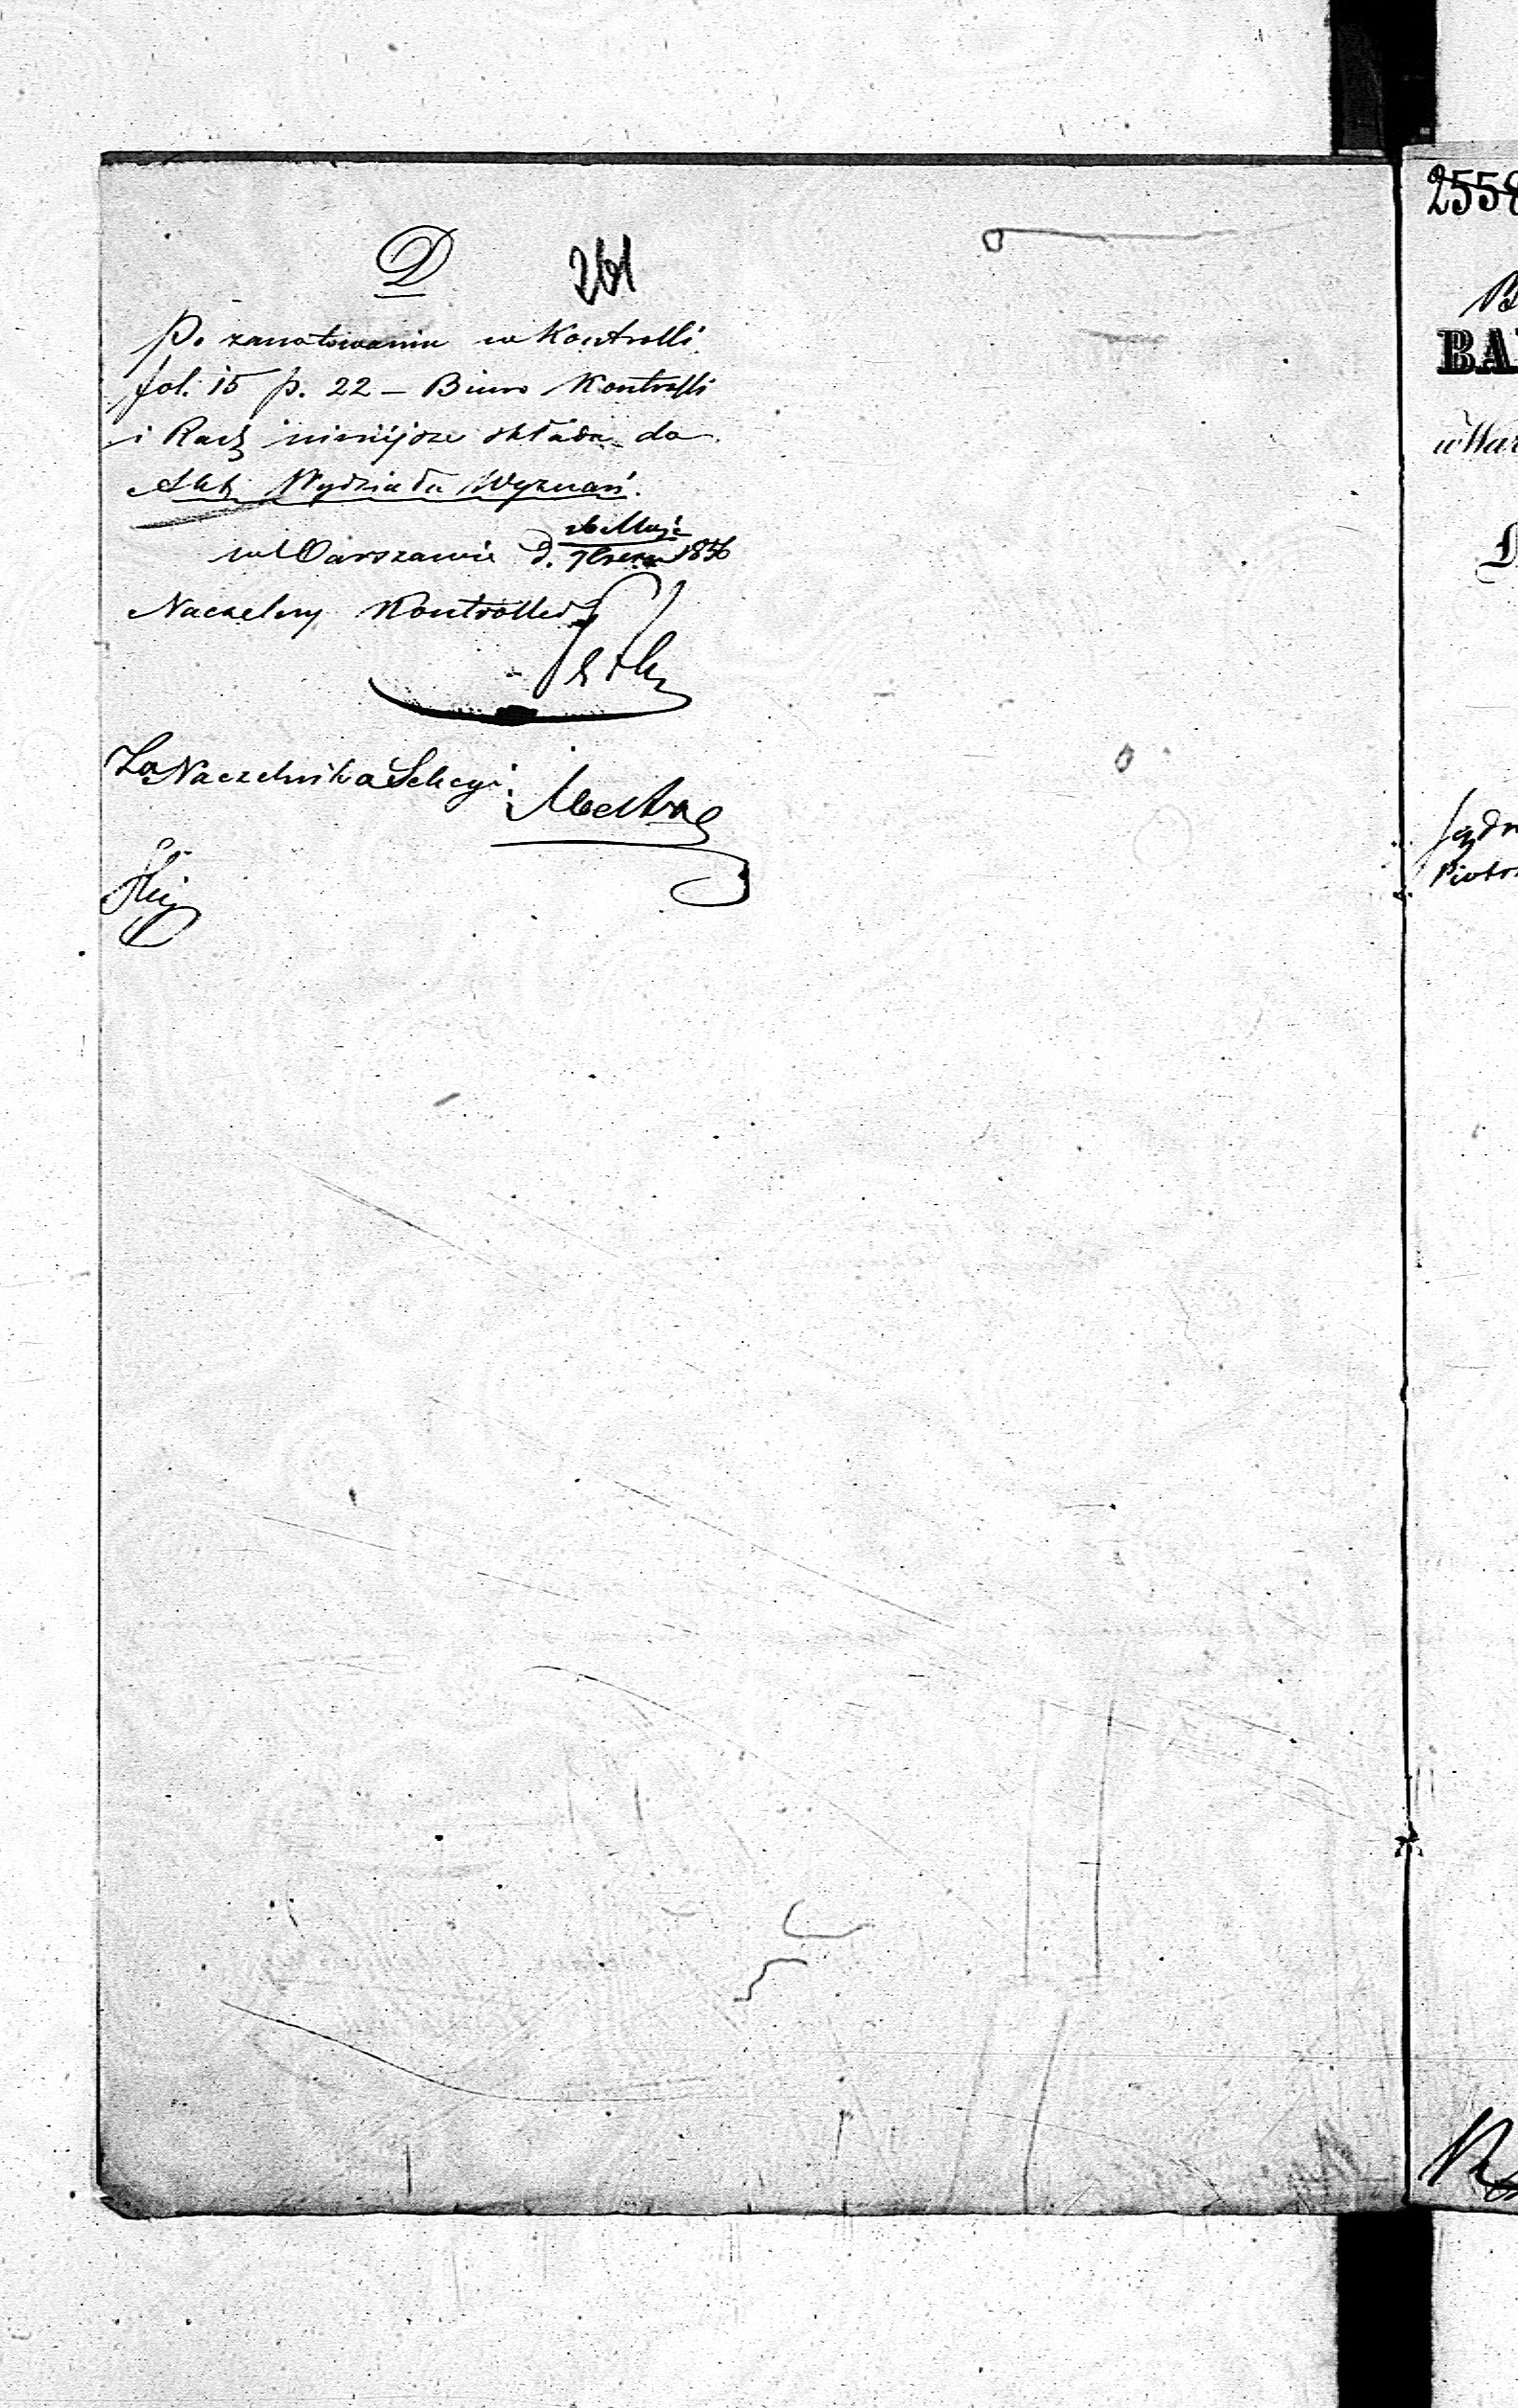 D 261
Po zanotowaniu w Kontrolli
fol. 15 p. 22 – Biuro Kontrolli
i Rach niniejsze składa do
Akt Wydziału Wyznań.
w Warszawie d. 26 Maja / 7 Czerw 1856
Naczelny Kontroller
Za Naczelnika Sekcyi
2558
B
BA
w War
D
Piotr